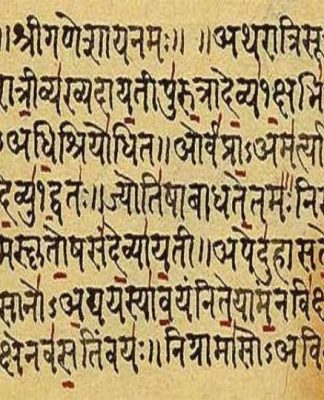 ॥श्रीगणेशायनमः॥ ॥अथरात्रिसू
रात्रीव्यख्यदायतीपुरुत्रादेव्य१क्षभि
ऽअधिश्रियोधित॥ओर्वप्राऽअमर्त्या
देव्यु१द्वतः॥ज्योतिषाबाधतेतमः॥नि
मस्कृतोषसंदेव्यायती॥अपेदुहासते
सानोऽअद्ययस्यावयंनितेयामंनविक्ष
क्षेनवसतिंवयः॥नित्रामासोऽअवि